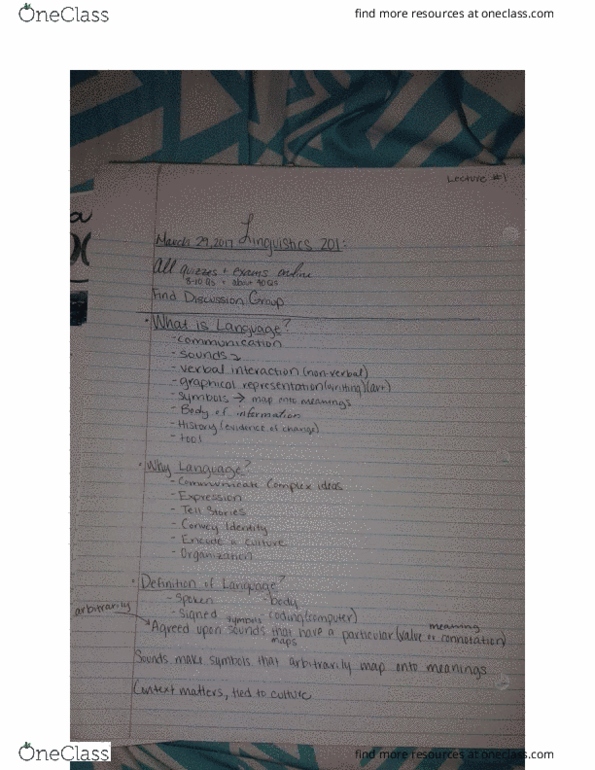 OneClass
find more resources at oneclass.com
Lecture #1
March 29, 2017 Linguistics 201:
All quizes + exams online
8-10 Qs + about 40Qs
Find Discussion Group
· What is Language?
- Communication
- Sounds
- verbal interaction (non-verbal)
- graphical representation (writing) (art)
- Symbols → map onto meanings
- Body of information
- History (evidence of change)
- tool
· Why Language?
- Communicate Complex ideas
- Expression
- Tell Stories
- Convey Identity
- Encode a culture
- Organization
· Definition of Language?
- Spoken - body
- Signed - coding (computer)
arbitrarily symbols meaning
Agreed upon sounds that have a particular (value or connotation)
maps
Sounds make symbols that arbitrarily map onto meanings
Context matters, tied to culture
OneClass
find more resources at oneclass.com